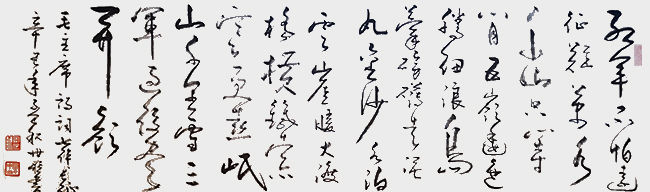 红军不怕远
征难万水
千山只等
闲五岭逶迤
腾细浪乌
蒙磅礴走泥
丸金沙水拍
云崖暖大渡
桥横铁索
寒更喜岷
山千里雪三
军过后尽
开颜
毛主席诗词七律长征
辛丑年秋书